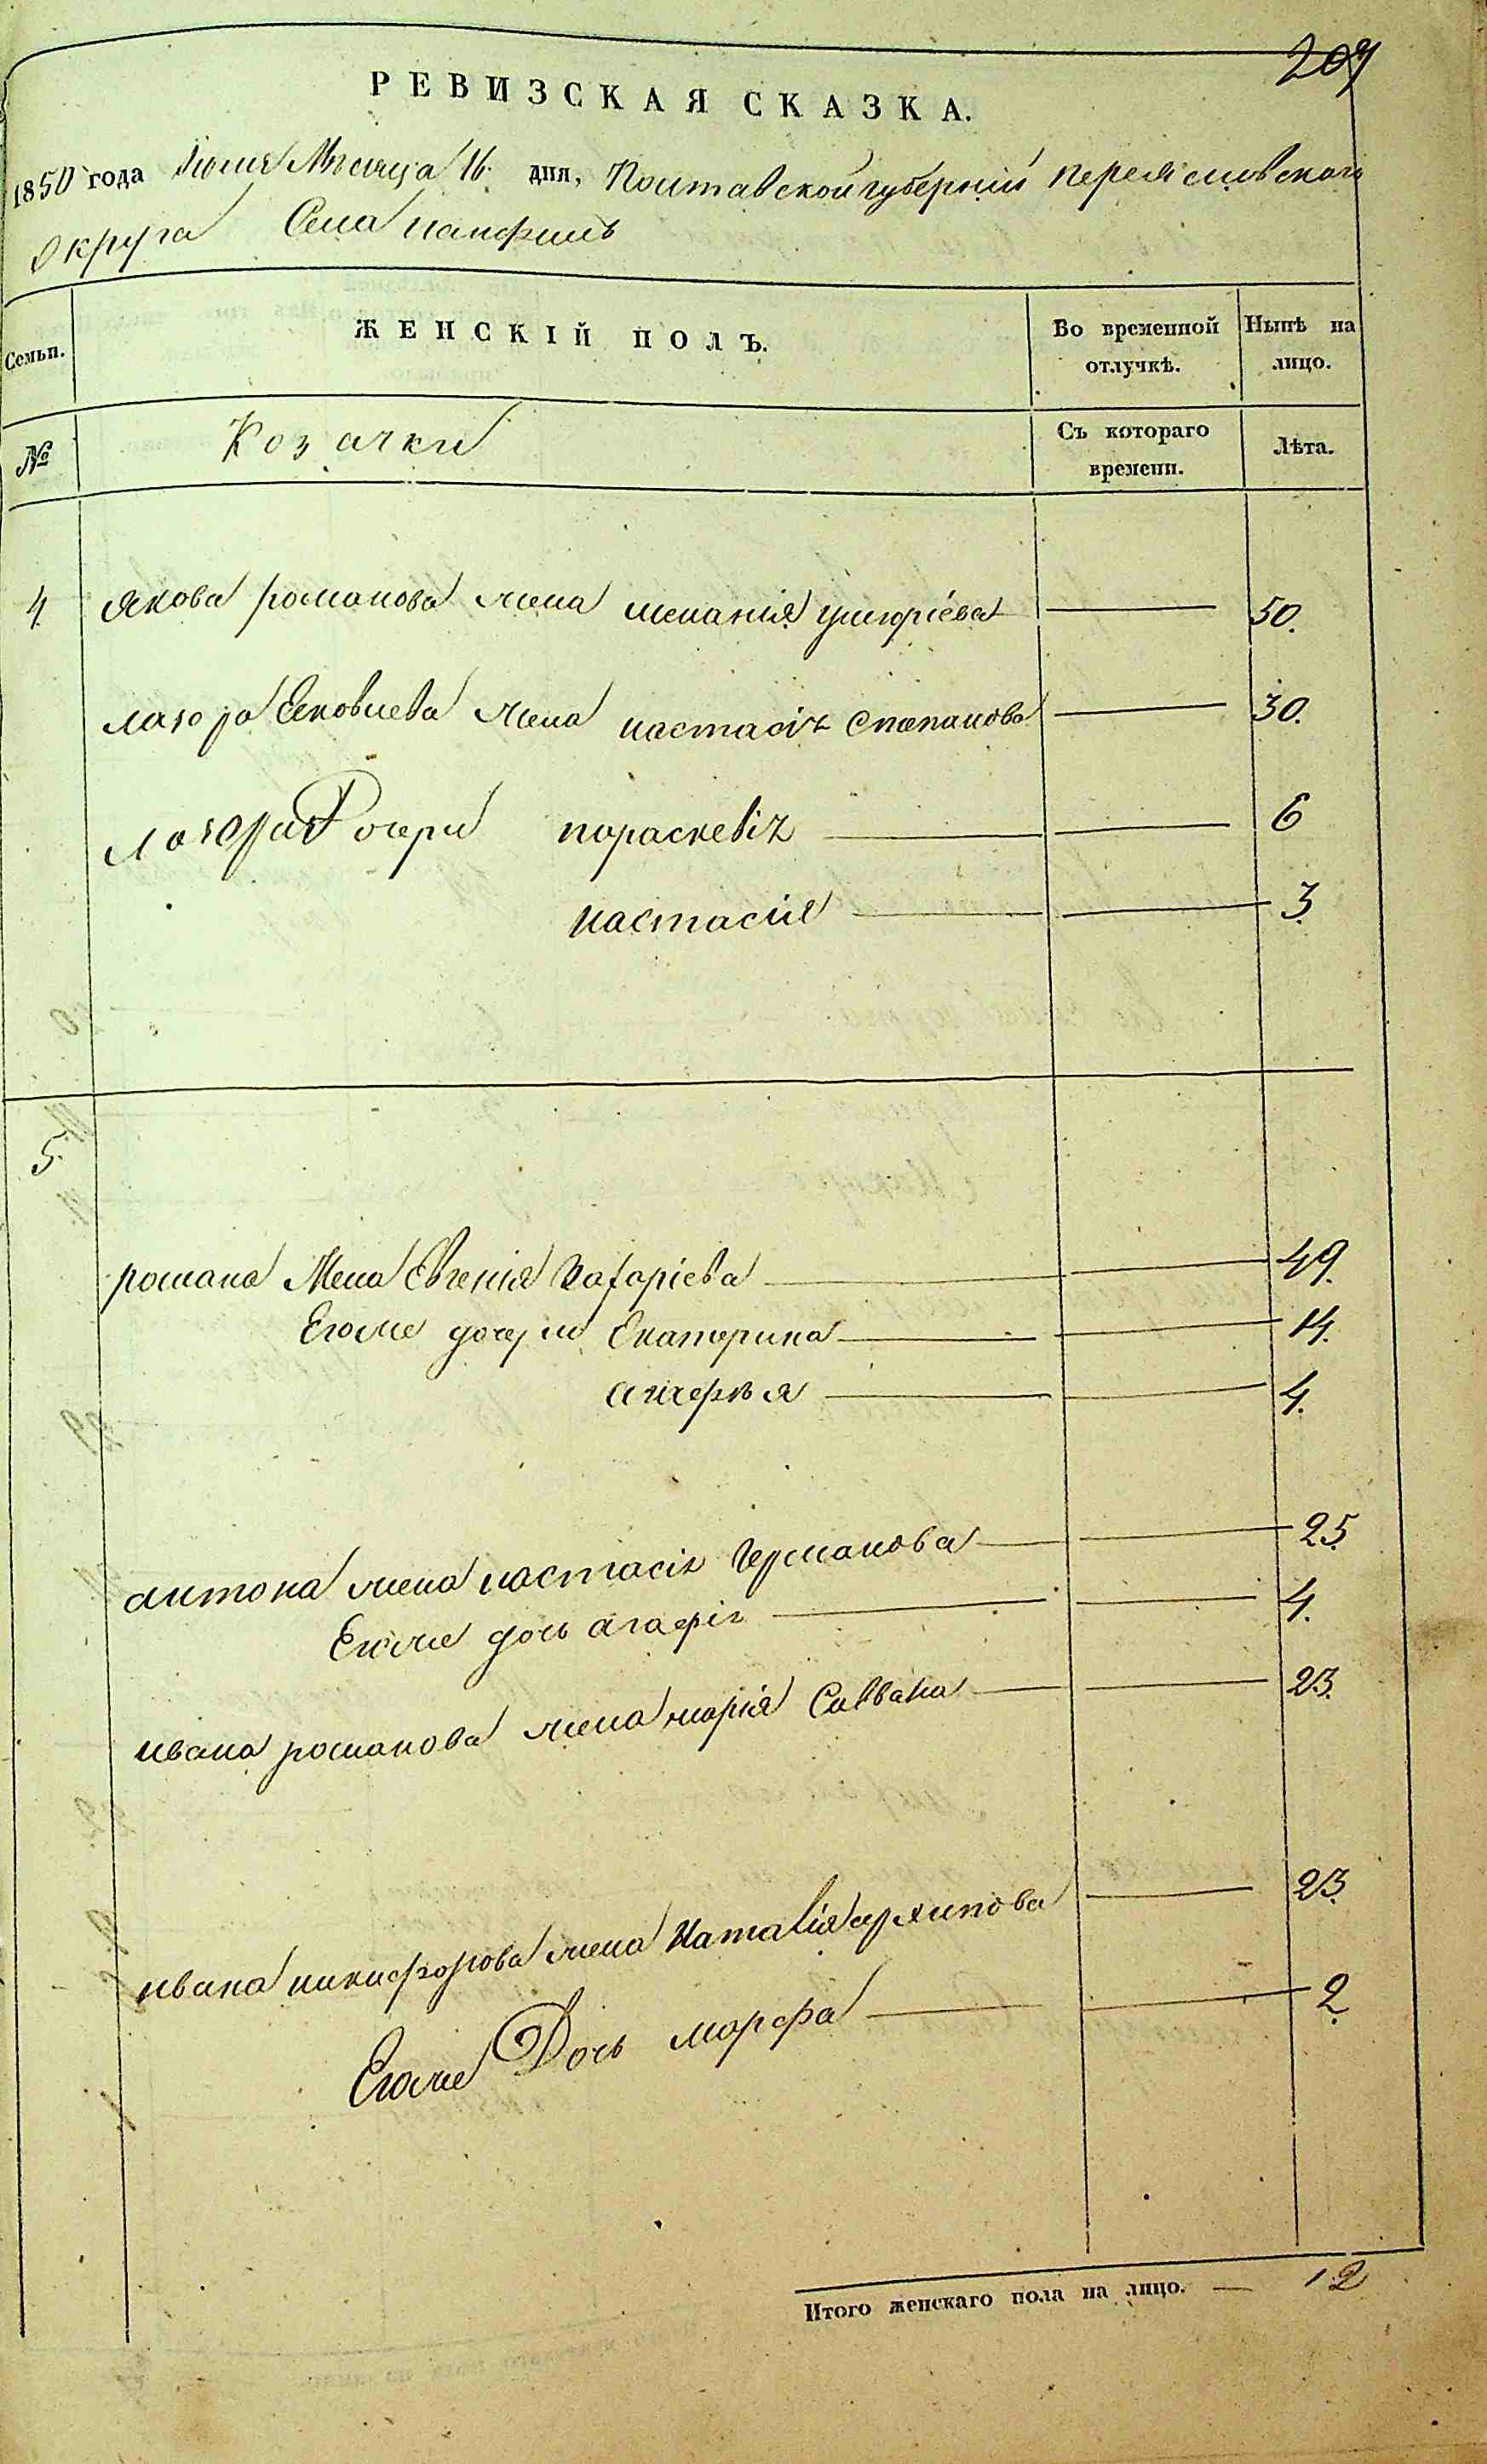 207
РЕВИЗСКАЯ СКАЗКА.
1850 года Июля Месяца 16 дня, Полтавской губернии переясловского
округа Села памфилъ
Семьи.
ЖЕНСКІЙ ПОЛЪ.
Во временной отлучкѣ.
Нынѣ на лицо.
№
Козачки
Съ котораго времени.
Лѣта.
4 Якова романова жена меланія григоріева 50.
лазора Яковлева жена настасія Степанова 30.
лазора Дочери параскевія 6
настасия 3.
5.
романа Жена Евгенія Захаріева 49.
Егоже дочери Екатерина 14.
4.
антона жена настасія Германова 25.
Егоже дочь агафія 4.
ивана романова жена марія Саввина 23.
ивана никифорова жена Наталія архипова 23.
Егоже Дочь марфа 2.
Итого женскаго пола на лицо. — 12